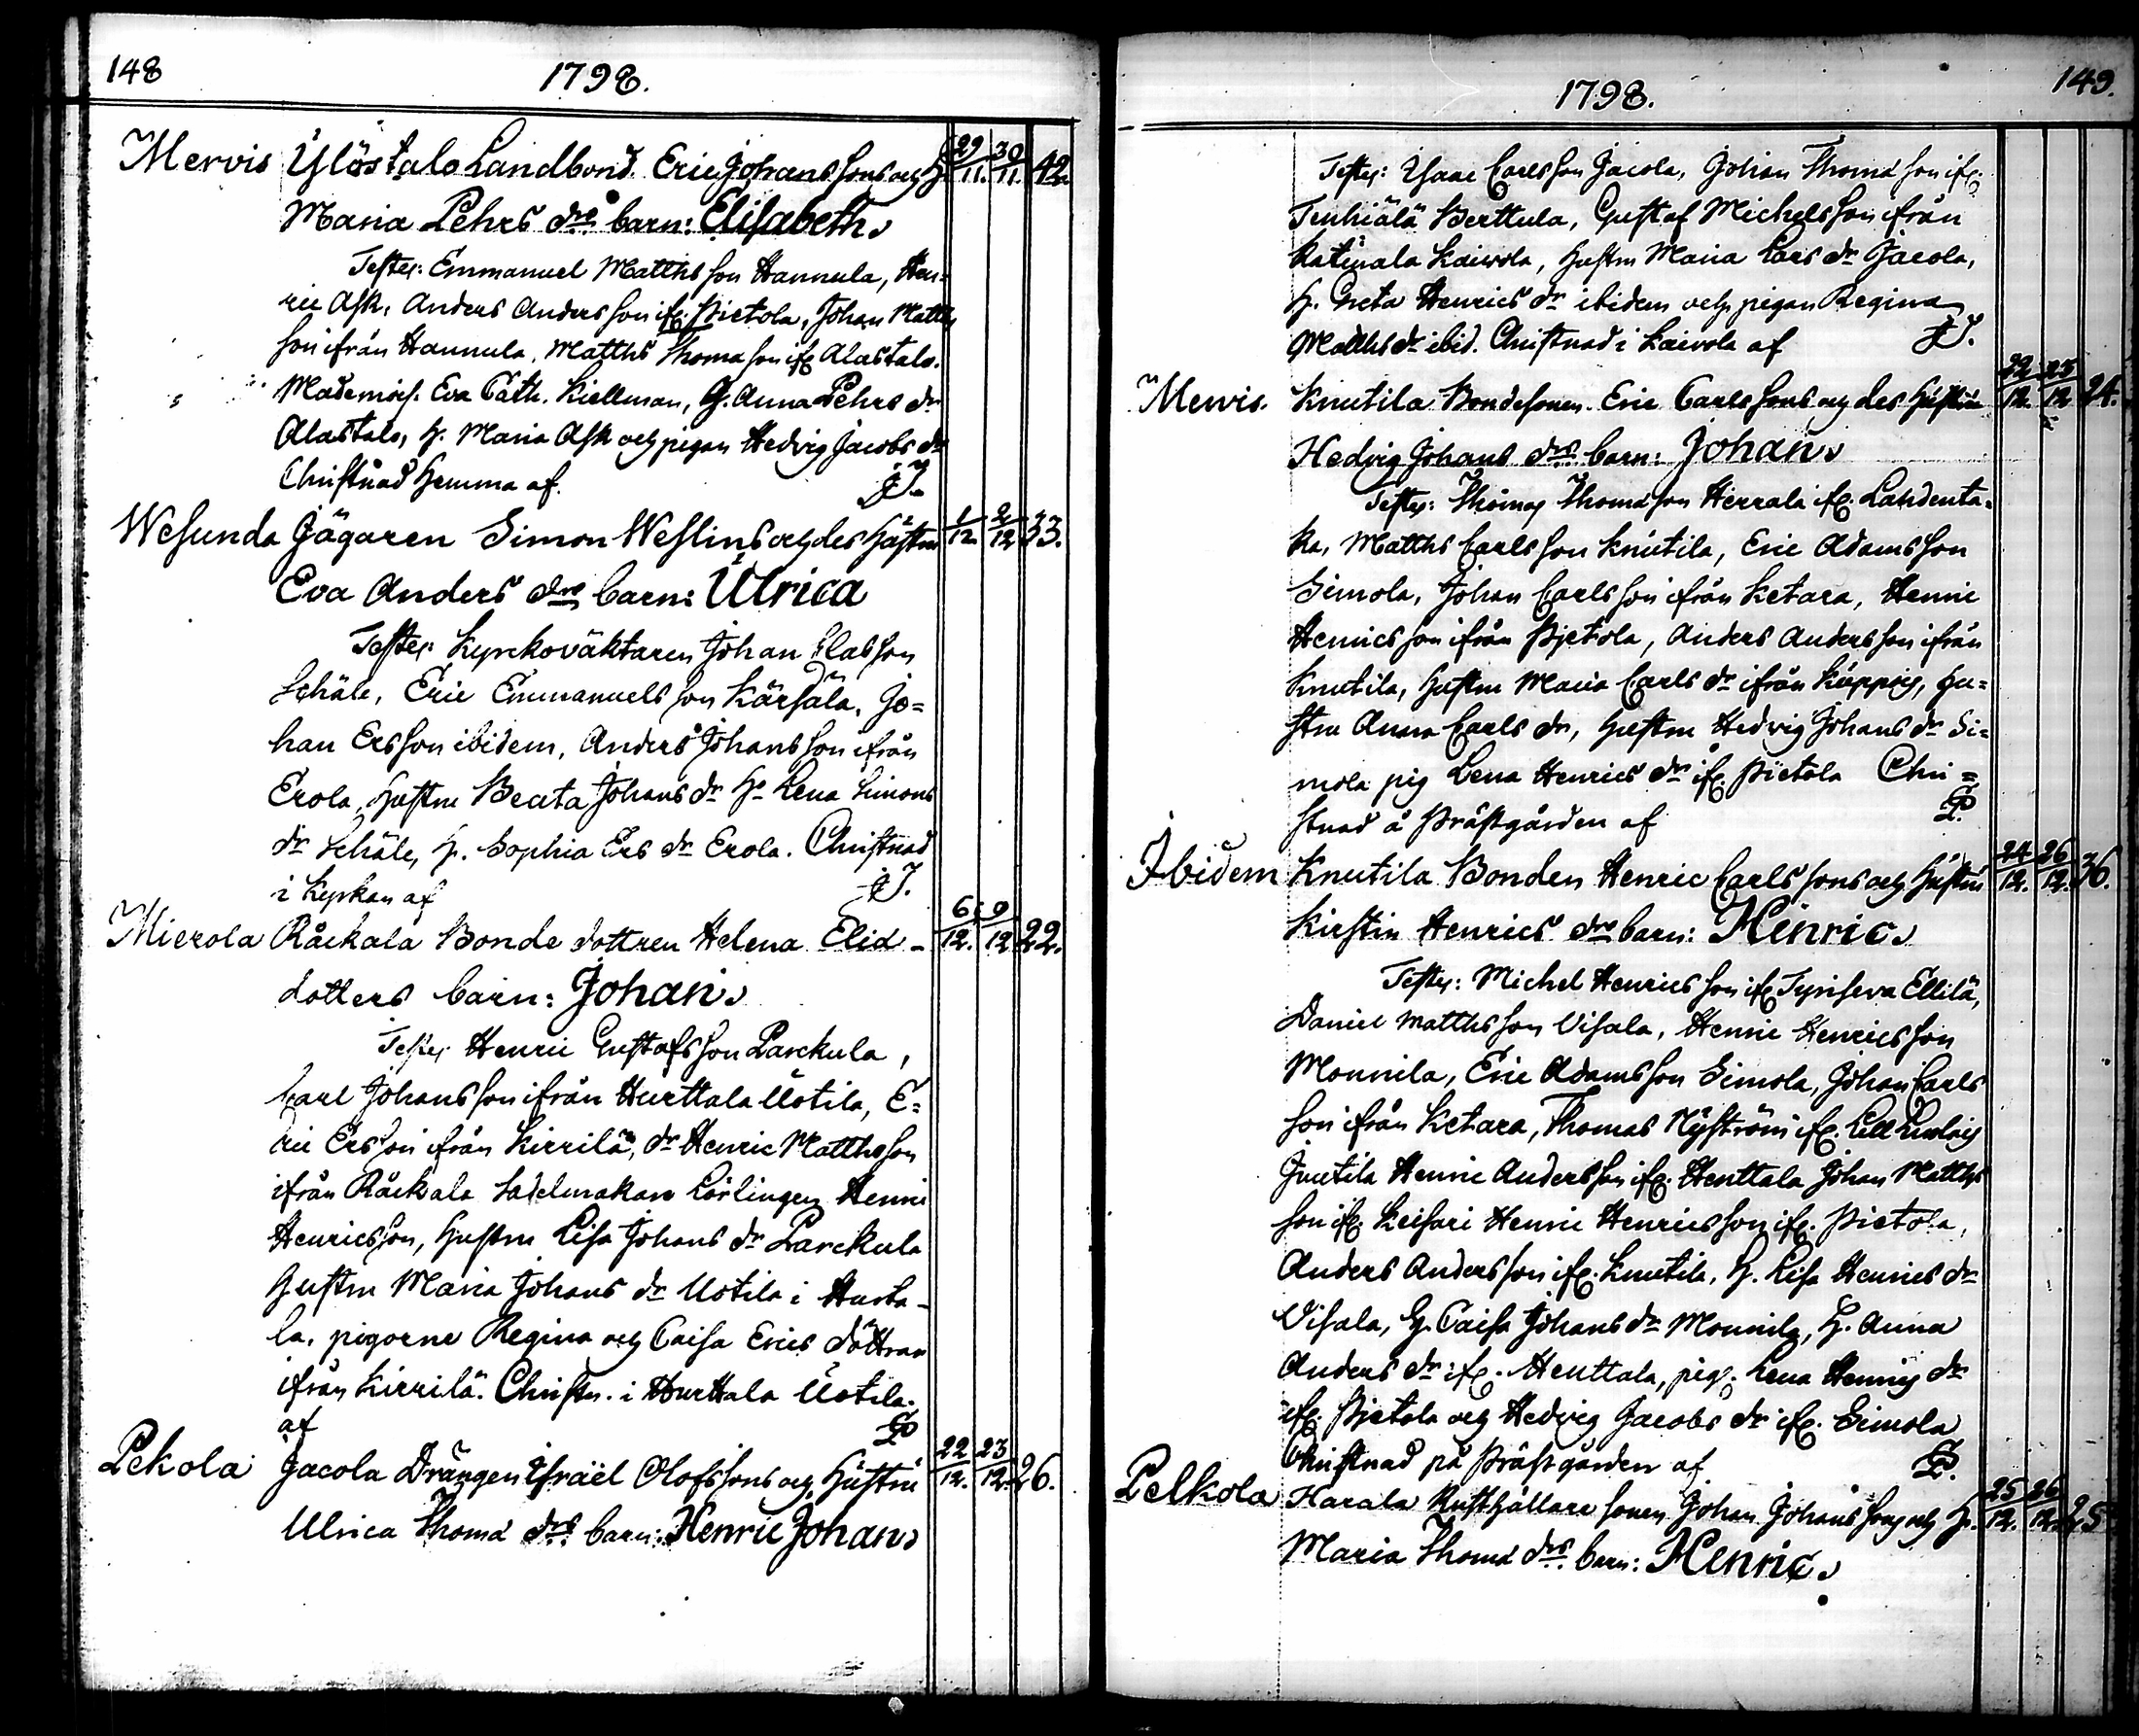 148
1798.
Mervis Ylöstalo Landbond. Eric Johans sons och H. 29/11. 30/11. 42.
Maria Pehrs drs barn: Elisabeth.
Testes: Emmanuel Matths son Hannula, Hen-
ric Ask, Anders Anders son ifr. Pietola, Johan Matths
son ifrån Hannula, Matths Thomæ son ifr. Alastalo.
Mademois. Eva Cath. Kiellman, H. Anna Pehrs dr
Alastalo, H. Maria Ask och pigan Hedvig Jacobs dr
Christnad hemma af
Wesunda Jägaren Simon Weslins och des Hustrus 1/12. 2/12 33.
Eva Anders drs barn: Ulrica
Testes: Kyrkoväktaren Johan
Eric Emmanuels son Kärsälä, Jo=
han Ersson ibidem, Anders Johansson ifrån
Erola, Hustru Beata Johans dr H. Lena Simons
dr H. Sophia Ers dr Erola. Christnad
i Kyrkan af
Mierola Råckala Bonde dottren Helena Elid- 6/12. 9/12 22.
dotters barn: Johan.
Testes Henric Gustafsson Parckula,
Carl Johansson ifrån Hurttala Uotila, E=
ric Ersson ifrån Kirrilä, dr Henric Matthsson
ifrån Råckala Sadelmakare Henric
Henricsson, Hustru Lisa Johans dr Parckula
Hustru Maria Johans dr Uotila i Hurta-
la, pigorne Regina och Caisa Erics döttrar
ifrån Kirrilä. Christn. i Hurttala Uotila.
af
Pekola Jacola Drängen Israël Olofs sons och Hustrus 22/12. 23/12. 26.
Ulrica Thomæ drs barn: Henric Johan.
1798.
149.
Testes: Isaac Carlsson Jacola, Johan Thomæ son ifr.
Tenhiälä Berttula, Gustaf Michelsson ifrån
Katinala Kaivola, Hustru Maria Lars dr Jacola,
H. Greta Henrics dr ibidem och pigan Regina
Matths dr ibid. Christnad i Kaivola af
Mervis. Knutila Bondesonen Eric Carls sons och des Hustrus 22/12. 23/12 24.
Hedvig Johans drs barn: Johan.
Testes: Thomas Thomæ son Herrala ifr. Landenta-
ka, Matths Carlsson Knutila, Eric Adamsson
Simola, Johan Carlsson ifrån Ketara, Henric
Henricsson ifrån Pietola, Anders Andersson ifrån
Knutila, Hustru Maria Carls dr ifrån Hu=
stru Anna Carls dr, Hustru Hedvig Johans dr Si=
mola pig Lena Henrics dr ifr. Pietola Chri=
stnad å Prästgården af
Ibidem Knutila Bonden Henric Carls sons och Hustrus 24/12. 26/12. 36.
Kirstin Henrics drs barn: Henric.
Testes: Michel Henrics son ifr. Ellilä,
Daniel Matthsson Visala, Henric Henricsson
Monnila, Eric Adamsson Simola, Johan Carls
son ifrån Ketara, Thomas Nyström ifr.
Juutila Henric Andersson ifr. Henttala Johan Matths
son ifr. Keisari Henric Henricsson ifr. Pietola,
Anders Andersson ifr. Knutila, H. Lisa Henrics dr
Visala, H. Caisa Johans dr Monnila, H. Anna
Anders dr ifr. Henttala, pig. Lena Henrics dr
ifr. Pietola och Hedvig Jacobs dr ifr. Simola
Christnad på Prästgården af
Pelkola Harala Rusthållare sonen Johan Johans sons och H. 25/12. 26/12. 25
Maria Thomæ drs. barn: Henric.